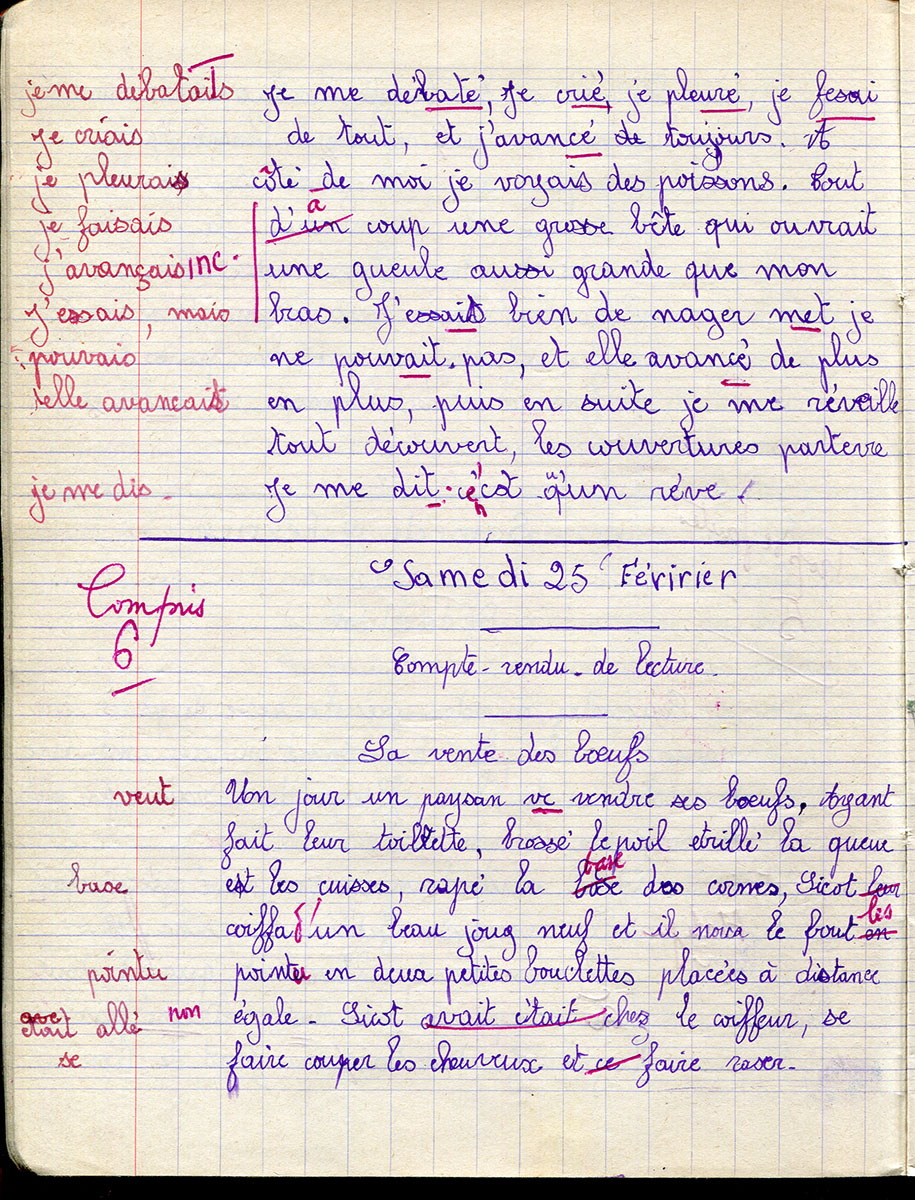 je me débatais Je me débaté, Je crié, je pleuré, je fesai
Je criais de tout, et j'avancé de toujours. A
je pleurais côté de moi je voyais des poissons. Tout
je faisais d'un a coup une grosse bête qui ouvrait
j'avançais INC. une gueule aussi grande que mon
J'essais, mais bras. J'essaits bien de nager met je
pouvais ne pouvait pas, et elle avancé de plus
elle avancait en plus, puis en suite je me réveille
tout découvert, les couvertures parterre
je me dis. Je me dit. c'est qu'un réve.
Samedi 25 Féririer
Compris
6
Compte-rendu de lecture.
La vente des bœufs
veut Un jour un paysan ve vendre ses bœufs, Ayant
fait leur toilette, brossé le poil etrillé la queue
base et les cuisses, rapé la base des cornes, Sicot leur
coiffa d'un beau joug neuf et il noua le frout en les
pointu pointu en deux petites bouclettes placées à distance
était allé non égale. Sicot avait était chez le coiffeur, se
se faire couper les cheuveux et ce faire raser.